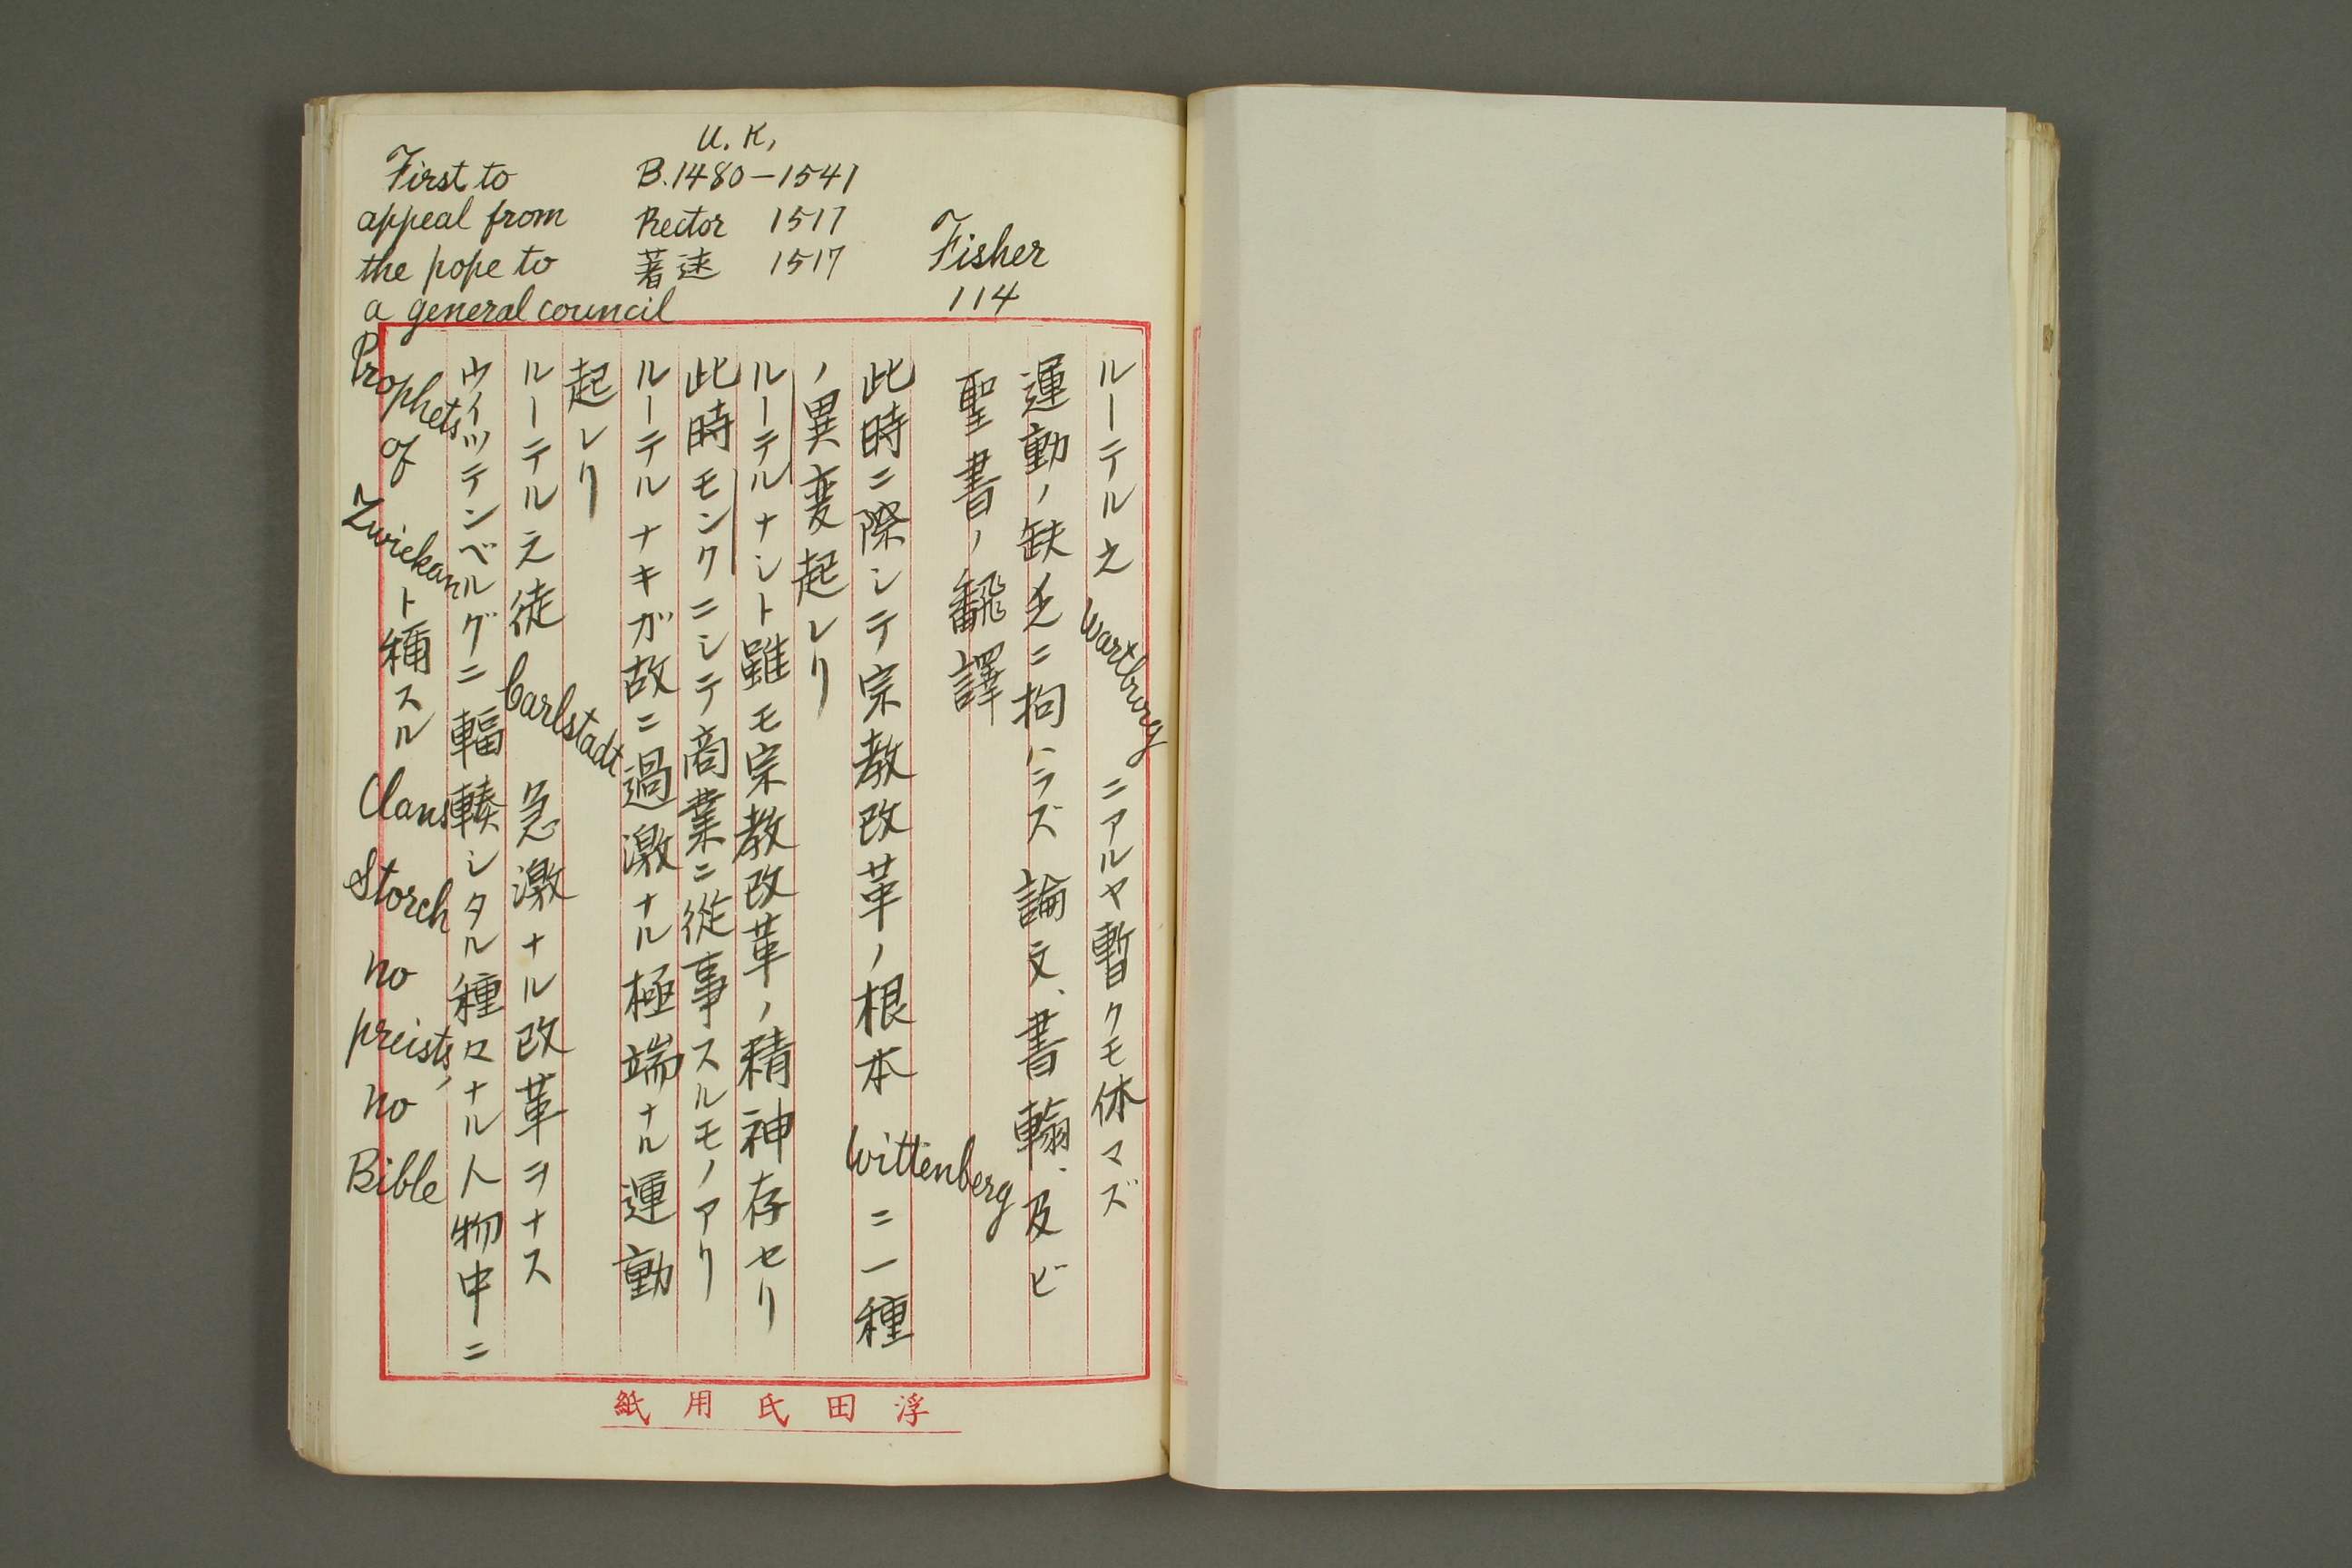 U. K,
B. 1480－1541
Rector 1517
著述 1517
First to
appeal from
the pope to
a general council
Fisher
114
ルーテル之 Wartburg ニアルヤ暫クモ休マズ
運動ノ缺乏ニ拘ハラズ論文、書翰、及ビ
聖書ノ飜譯
此時ニ際シテ宗教改革ノ根本 Wittenberg ニ一種
ノ異変起レリ
ルーテルナシト雖モ宗教改革ノ精神存セリ
此時モンクニシテ商業ニ從事スルモノアリ
ルーテルナキガ故ニ過激ナル極端ナル運動
起レリ
ルーテル之徒 Carlstadt 急激ナル改革ヲナス
ウイッテンベルグニ輻輳シタル種々ナル人物中ニ
Prophets of Zwickan ト稱スル Clans Storch no preists, no Bible
浮田氏用紙